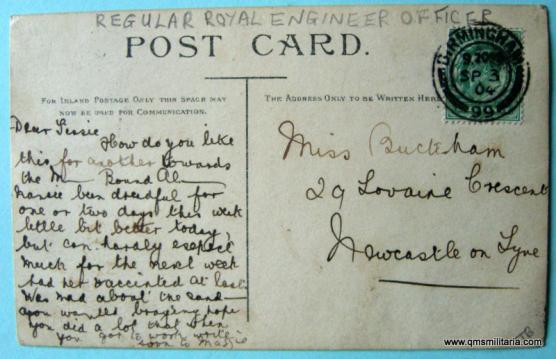 REGULAR ROYAL ENGINEER OFFICER
POST CARD.
BIRMINGHAM
9.20
SP 3
04
99
FOR INLAND POSTAGE ONLY THIS SPACE MAY
NOW BE USED FOR COMMUNICATION.
THE ADDRESS ONLY TO BE WRITTEN HERE
Dear Jessie
How do you like
this for another towards
the M Bound Al
been dreadful for
one or two days this week
little bit better today,
but can hardly expect
much for the next week
had her vaccinated at last.
Was mad about the sand
you wanted, hope
you did a lot that when
you got to work write
soon to Massie
Miss Buckham
29 Lovaine Crescent
Newcastle on Tyne
www.qmsmilitaria.com